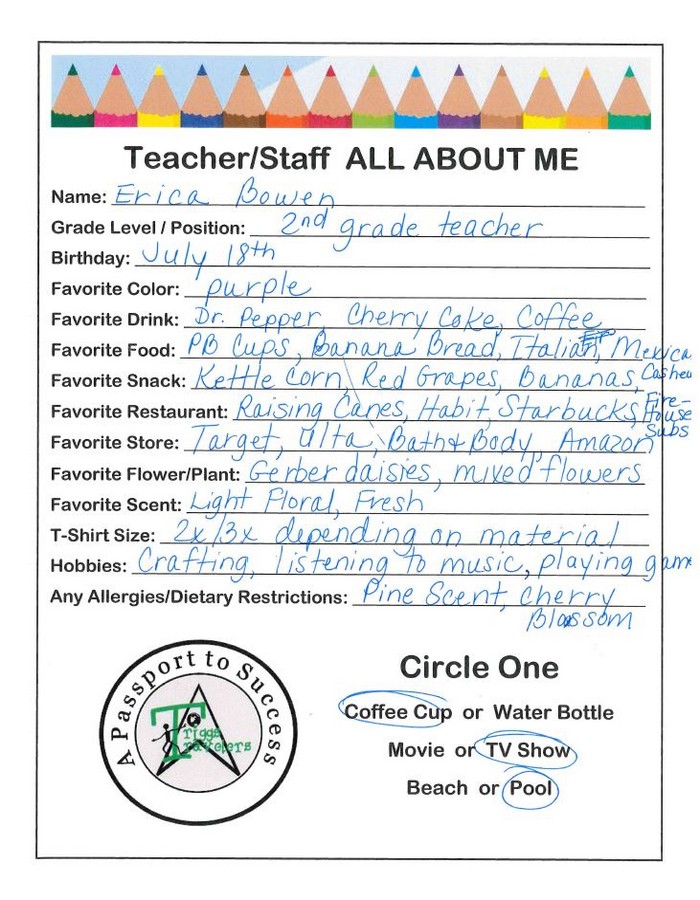 Teacher/Staff ALL ABOUT ME
Name: Erica Bowen
Grade Level / Position: 2nd grade teacher
Birthday: July 18th
Favorite Color: purple
Favorite Drink: Dr. Pepper, Cherry Coke, Coffee
Favorite Food: PB Cups, Banana Bread, Italian, Mexica
Favorite Snack: Kettle Corn, Red Grapes, Bananas, Cashew
Favorite Restaurant: Raising Canes, Habit, Starbucks, Fire-House Subs
Favorite Store: Target, Ulta, Bath & Body, Amazon
Favorite Flower/Plant: Gerber daisies, mixed flowers
Favorite Scent: Light Floral, Fresh
T-Shirt Size: 2x/3x depending on material
Hobbies: Crafting, listening to music, playing game
Any Allergies/Dietary Restrictions: Pine Scent, Cherry
Blossom
A Passport to Success
Triggs
Travelers
Circle One
Coffee Cup or Water Bottle
Movie or TV Show
Beach or Pool